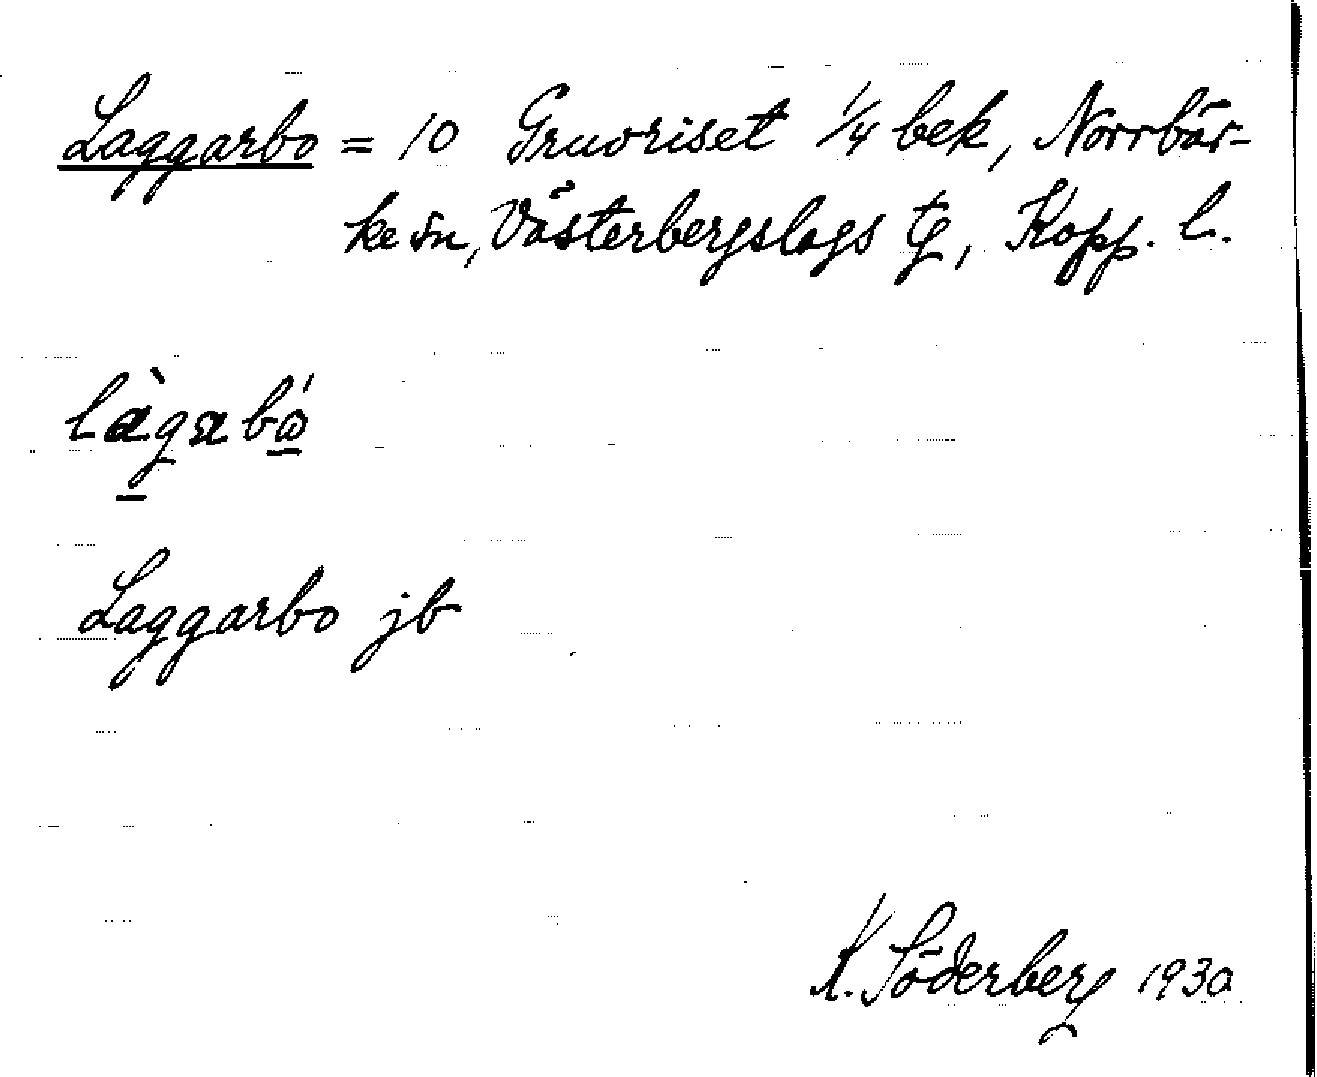 Laggarbo = 10 Gruvriset 1/4 bek, Norrbär-
ke sn, Västerbergslags tg, Kopp. l.
làgabó
Laggarbo jb
K. Söderberg 1930